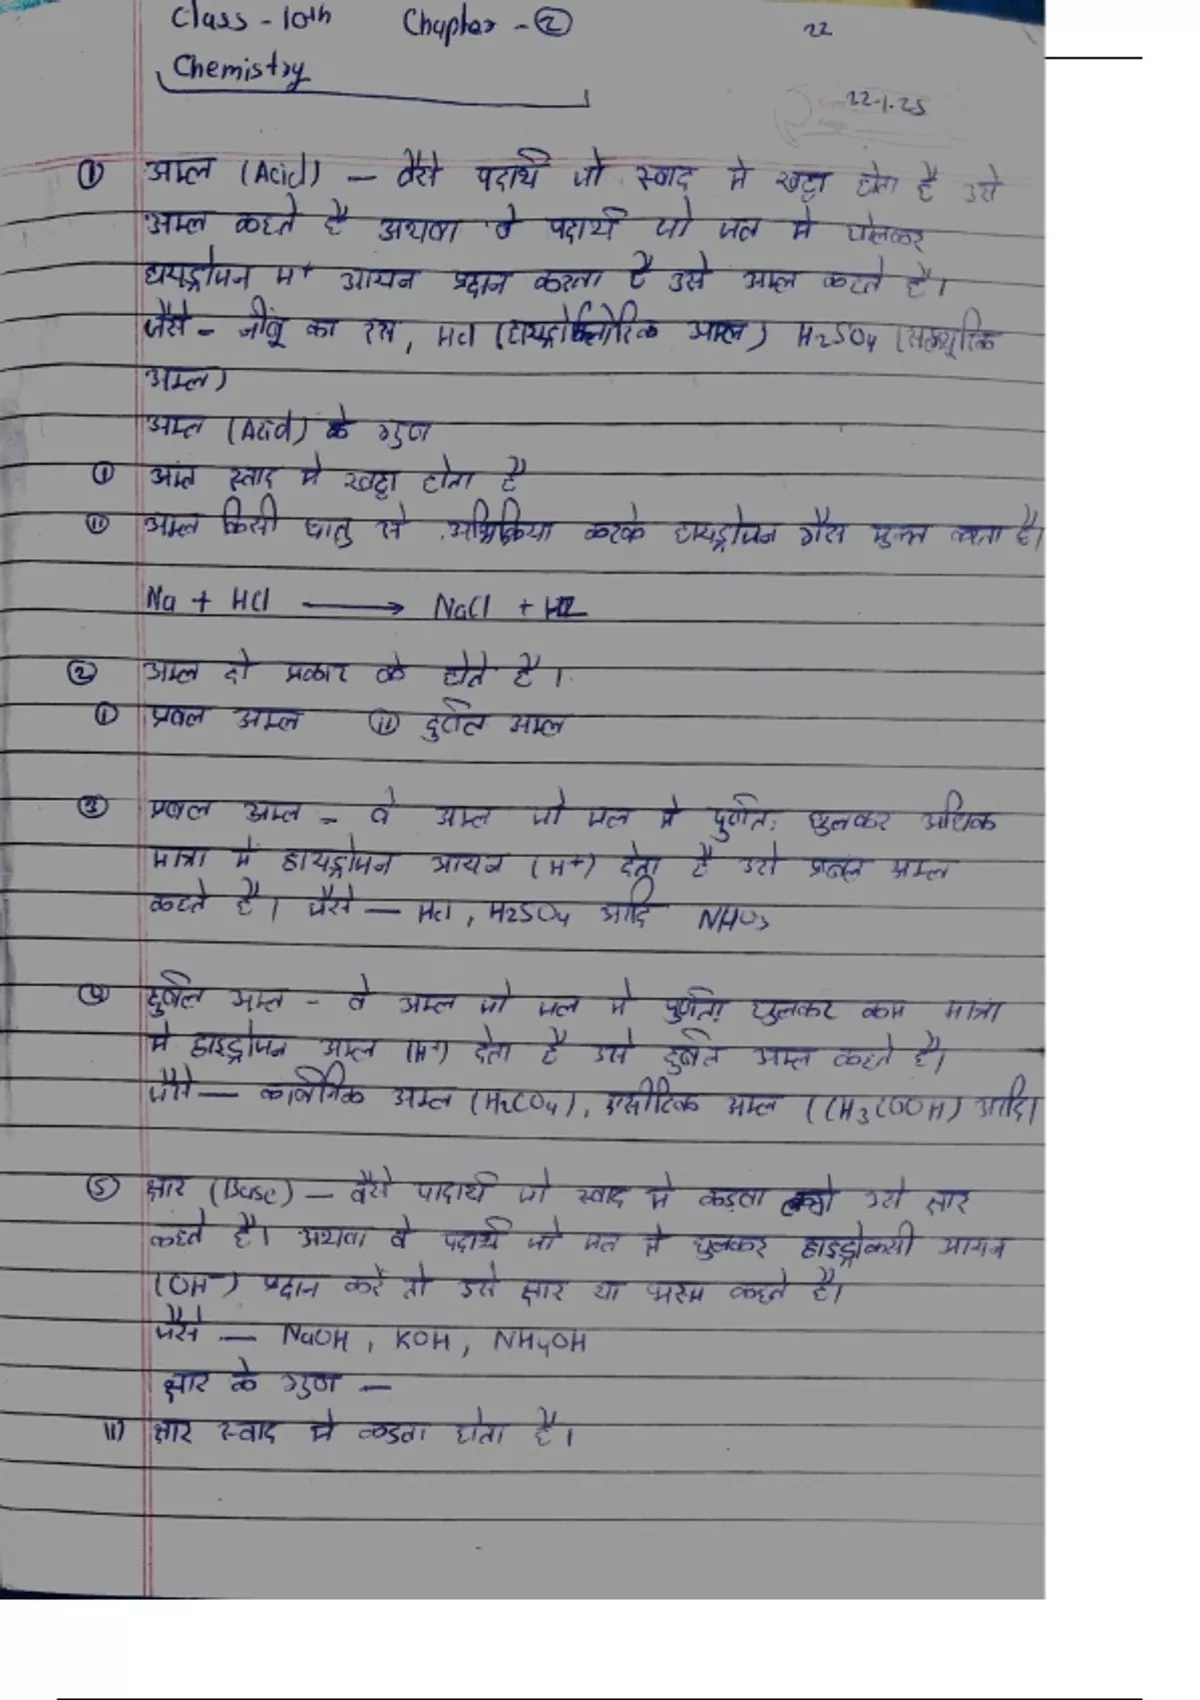 Class - 10th Chapter - ② 22
Chemistry
22.1.25
① अम्ल (Acid) — वैसे पदार्थ जो स्वाद मे खट्टा होता है उसे
अम्ल कहते है अथवा वे पदार्थ जो जल मे घोलकर
हायड्रोजन H+ आयन प्रदान करता है उसे अम्ल कहते है।
जैसे - नींबू का रस, HCl (हायड्रोक्लोरिक अम्ल) H2SO4 (सल्फ्यूरिक
अम्ल)
अम्ल (Acid) के गुण
① अम्ल स्वाद मे खट्टा होता है
⑪ अम्ल किसी धातु से अभिक्रिया करके हायड्रोजन गैस मुक्त करता है।
Na + HCl ⟶ NaCl + H2
② अम्ल दो प्रकार के होते है।
① प्रबल अम्ल ⑪ दुर्बल अम्ल
③ प्रबल अम्ल - वे अम्ल जो जल मे पुर्णत: घुलकर अधिक
मात्रा मे हायड्रोजन आयन (H+) देता है उसे प्रबल अम्ल
कहते है। जैसे — HCl, H2SO4 आदि NHO3
④ दुर्बल अम्ल - वे अम्ल जो जल मे पुर्णत: घुलकर कम मात्रा
मे हाइड्रोजन अम्ल (H+) देता है उसे दुर्बल अम्ल कहते है।
जैसे — कार्बोनिक अम्ल (H2CO4), एसीटिक अम्ल (CH3COOH) आदि।
⑤ क्षार (Base) — वैसे पादार्थ जो स्वाद मे कड़वा उसे क्षार
कहते है। अथवा वे पदार्थ जो जल मे घुलकर हाइड्रोक्सी आयन
(OH-) प्रदान करें तो उसे क्षार या भस्म कहते है।
जैसे — NaOH, KOH, NH4OH
क्षार के गुण —
11) क्षार स्वाद मे कडवा होता है।